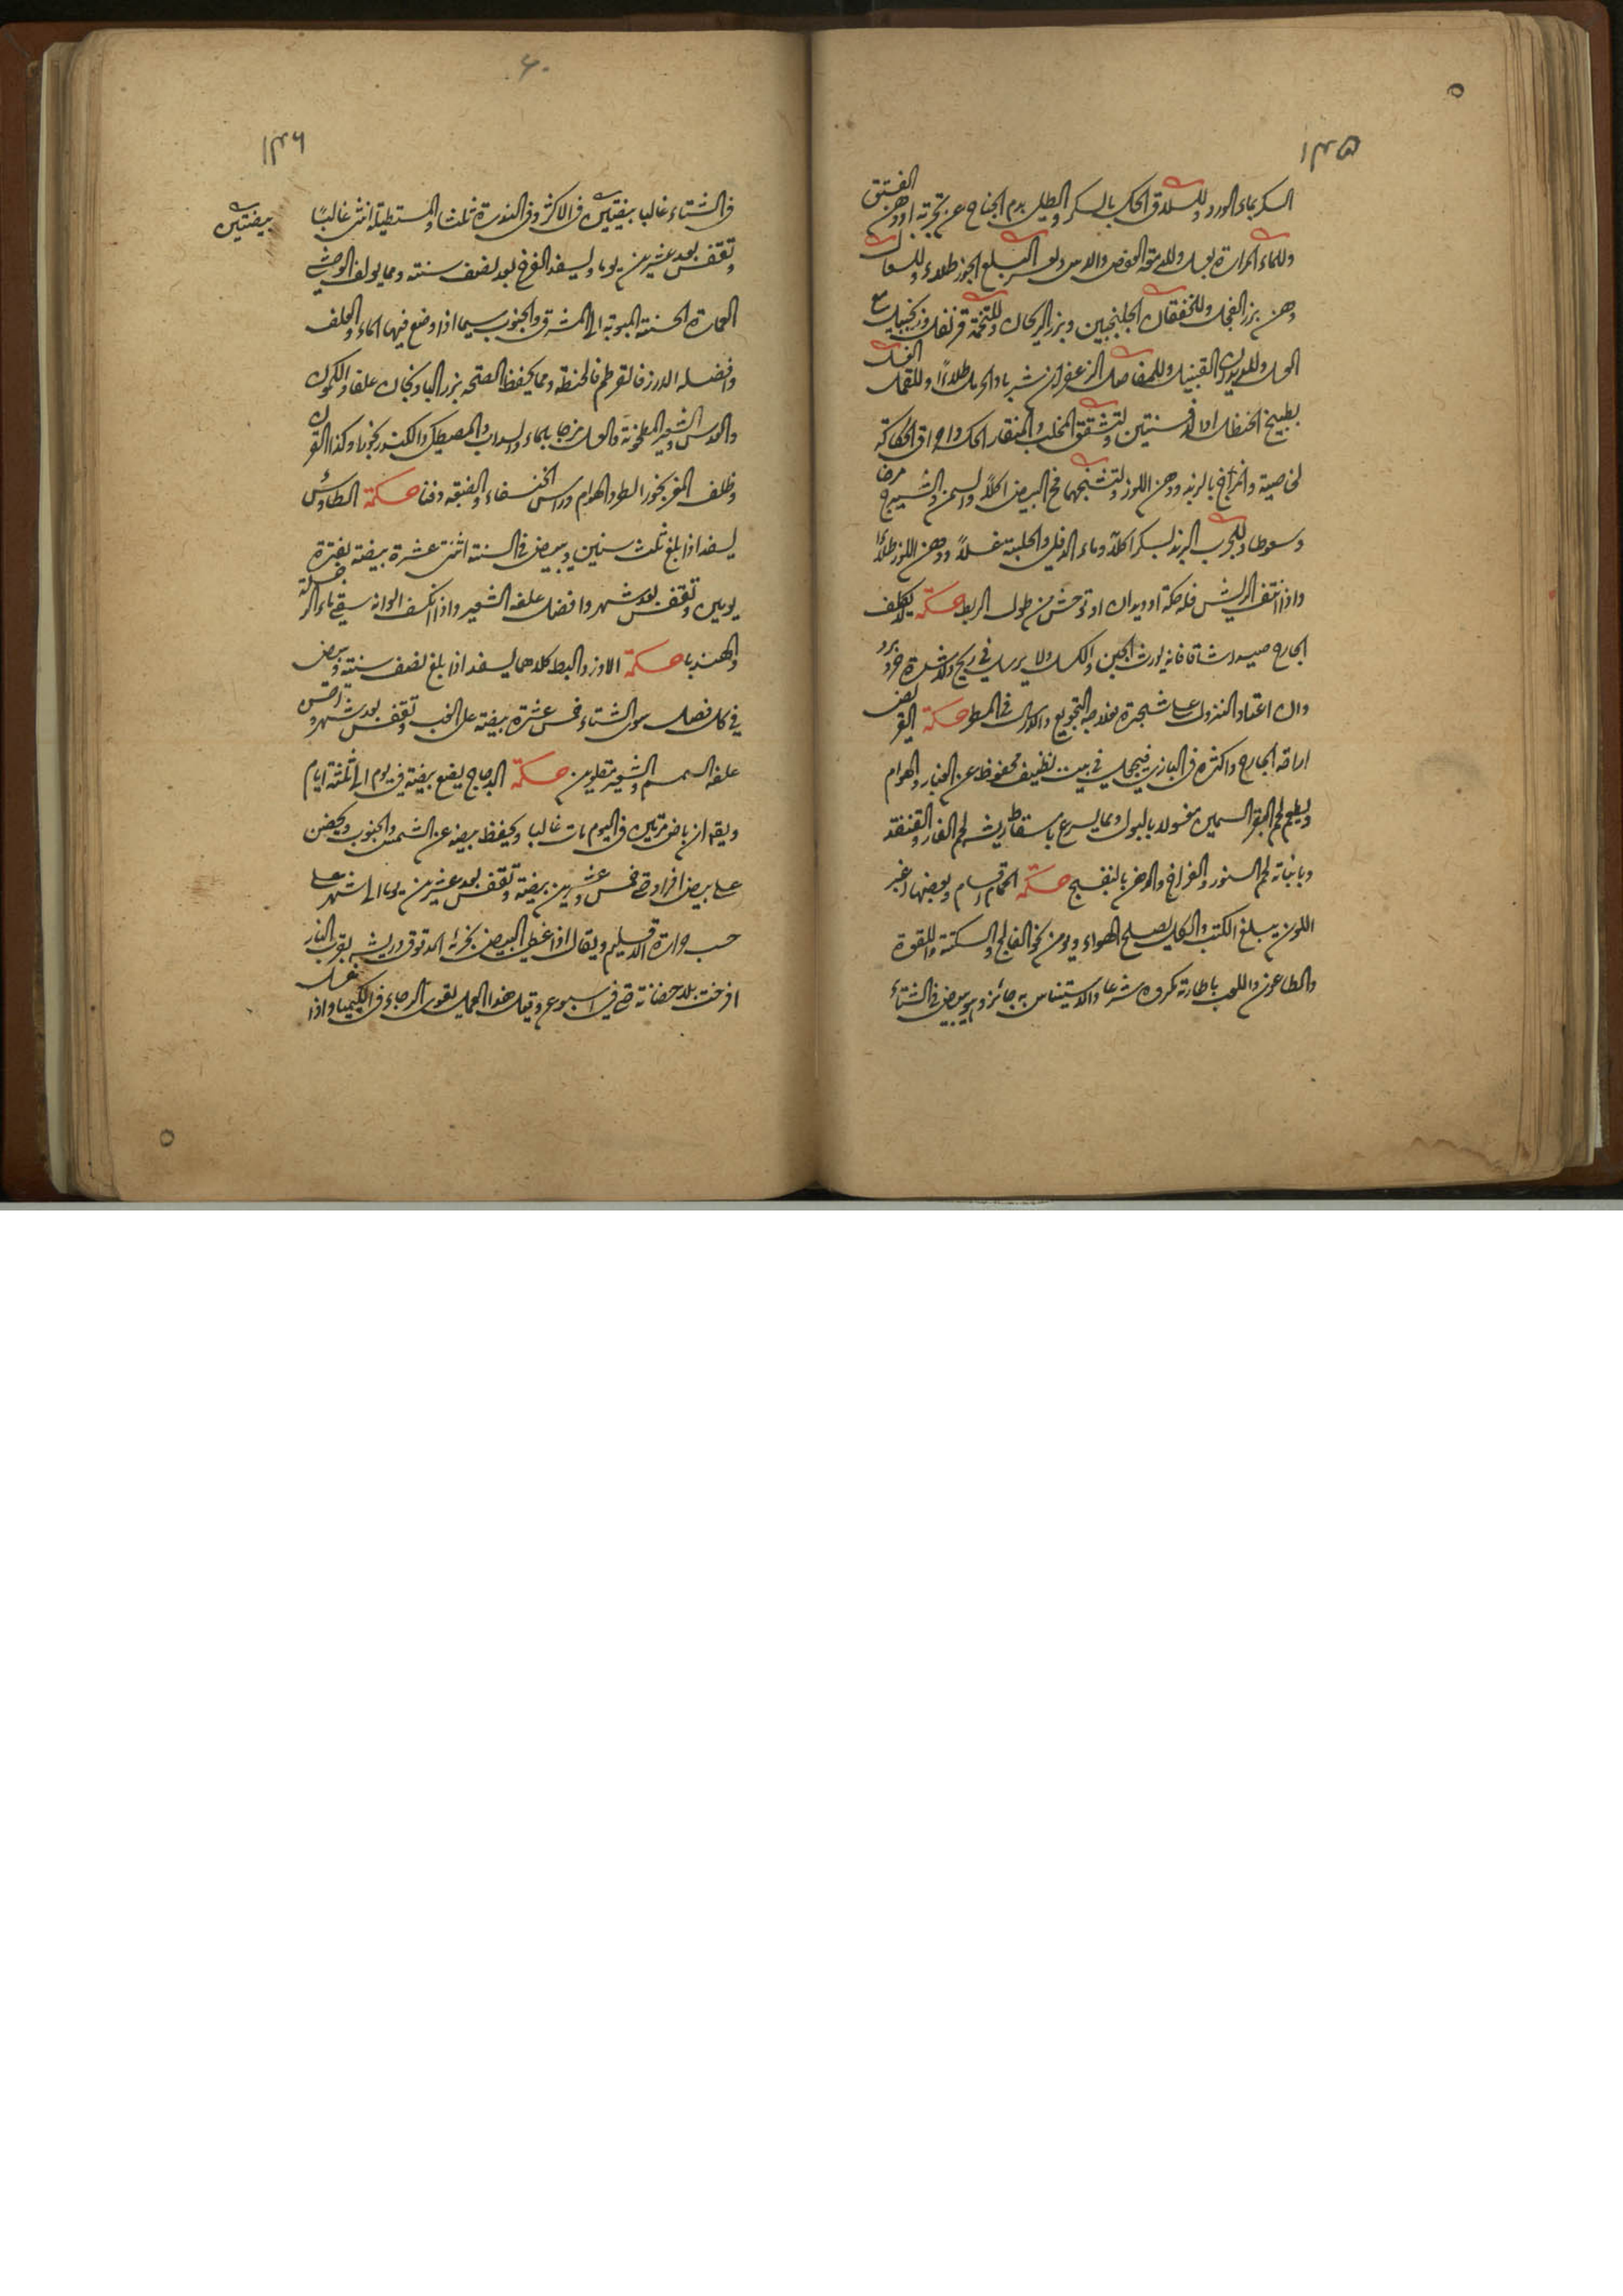 ١٣٥
السكر بماء الورد وللسلاق الحك بالسكر والطلي بدم الجناح عن تجربة او دهن الفستق
وللماء المرارة بعسل
دهن بزر الفجل وللخفقان الجلنجبين وبزر الريحان وللتخمة قرنفل وزنجبيل مع
العسل وللديدان القنبيل وللمفاصل الزعفران شربا والخرمل طلاءً وللقمل الغسل
بطبيخ الحنظل او الافسنتين ولتشقق المخلب والمنقار الحك
لخاصيته والمرّاخ بالزبد ودهن اللوز ولتشنجهما مخ البيض اكلاً والسمن والشيرج مرخا
وسعوطا وللجرب الزبد بسكر اكلاً وماء الدفلى والحلبة غسلاً ودهن اللوز طلاءً
واذا نتف الريش فله حكة او ديدان او توحش من طول الربط حكمة لا يكلف
الجارح صيودا شاقا فانه يورث الجبن والكسل ولا يرسل في ريح ولا شدة حر وبرد
وان اعتاد النزول على شجرة فعلاجه التجويع والارسال في المطر حكمة القرنصة
اراقة الجارح واكثره في البازي فيجعل في بيت نظيف محفوظ عن الغبار والهوام
ويطعم لحم البقر السمين مغسولا بالبول ومما يسرع باسقاط ريشه لحم الفار والقنفذ
وبانباته لحم السنور والفراخ والدهن بالبنفسج حكمة الحمام اقسام وبعضها اغبر
اللون يبلغ الكتب والكل يصلح الهواء ويؤمن نحو الفالج والسكتة واللقوة
والطاعون واللعب باطارته مكروه شرعا والاستيناس به جائز وهو يبيض في الشتاء
٦٠
١٣٦
في الشتاء غالبا بيضتين في الاكثر وفي الندرة ثلث والمستطيلة انثى غالبًا
بيضتين
وتقفس بعد عشرين يوما ويسفد الفرخ بعد نصف سنة ومما يولف الوحشي
العمارة الحسنة المبوبة الى المشرق والجنوب سيما اذا وضع فيها الماء والعلف
وافضله الارز فالقرطم فالحنطة ومما يحفظ الصحة بزر الباذنجان علفا والكمون
والعدس والشعير المطحونة والعسل مزجا بالماء والسداب والمصطكى والكندر بخورا وكذا القرن
وظلف البقر بخورا لطرد الهوام وراس الخنفساء والضبعة دفنا حكمة الطاوس
يسفد اذا بلغ ثلث سنين ويبيض في السنة اثنتى عشرة بيضة بفترة
يومين وتقفس بعد شهر وافضل علفه الشعير واذا انكسف الوانه سقي ماء الرجلة
والهندبا حكمة الاوز والبط كلاهما يسفد اذا بلغ نصف سنة ويبيض
في كل فصل سوى الشتاء خمس عشرة بيضة على الغب وتقفس بعد شهر واحسن
علفه السمسم والشعير مقلوين حكمة الدجاج يضع بيضة في يوم الى ثلثة ايام
ويقال ان باض مرتين في اليوم مات غالبا ويحفظ بيضه عن الشمس والجنوب ويحضن
على بيض افراد حتى خمس وعشرين بيضة وتقفس بعد عشرين يوما الى شهر على
حسب حرارة الاقليم ويقال اذا غطي البيض بخرئه المدقوق وريشه بقرب النار
افرخت بلا حضانة حتى في اسبوع وقيل هذا العمل يقوي الرجاء في عمل الكيميا واذا